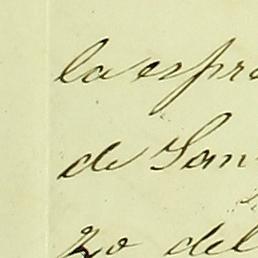 la espre
de San
zo del